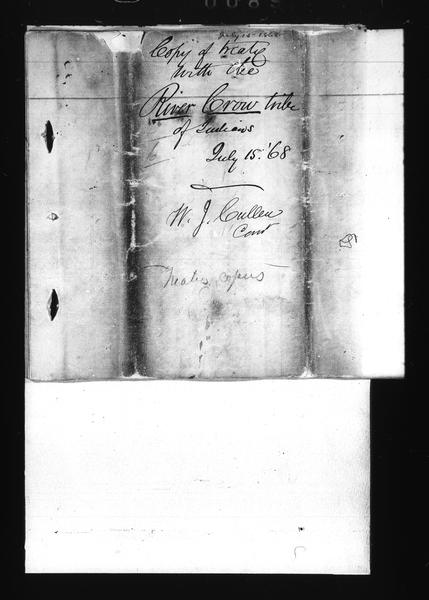 July 15-1868
Copy of treaty
with the
River Crow tribe
of Indians
July 15. '68
W. J. Cullen
Com
Treaties copies